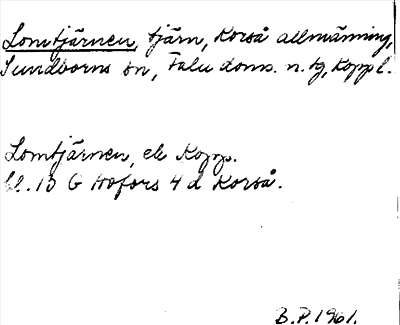 Lomtjärnen, tjärn, Korså allmänning,
Sundborns sn, Falu doms. n. tg, Koppl.
Lomtjärnen, ek Kopp.
bl. 13 G Hofors 4 d Korså.
B.P. 1961.